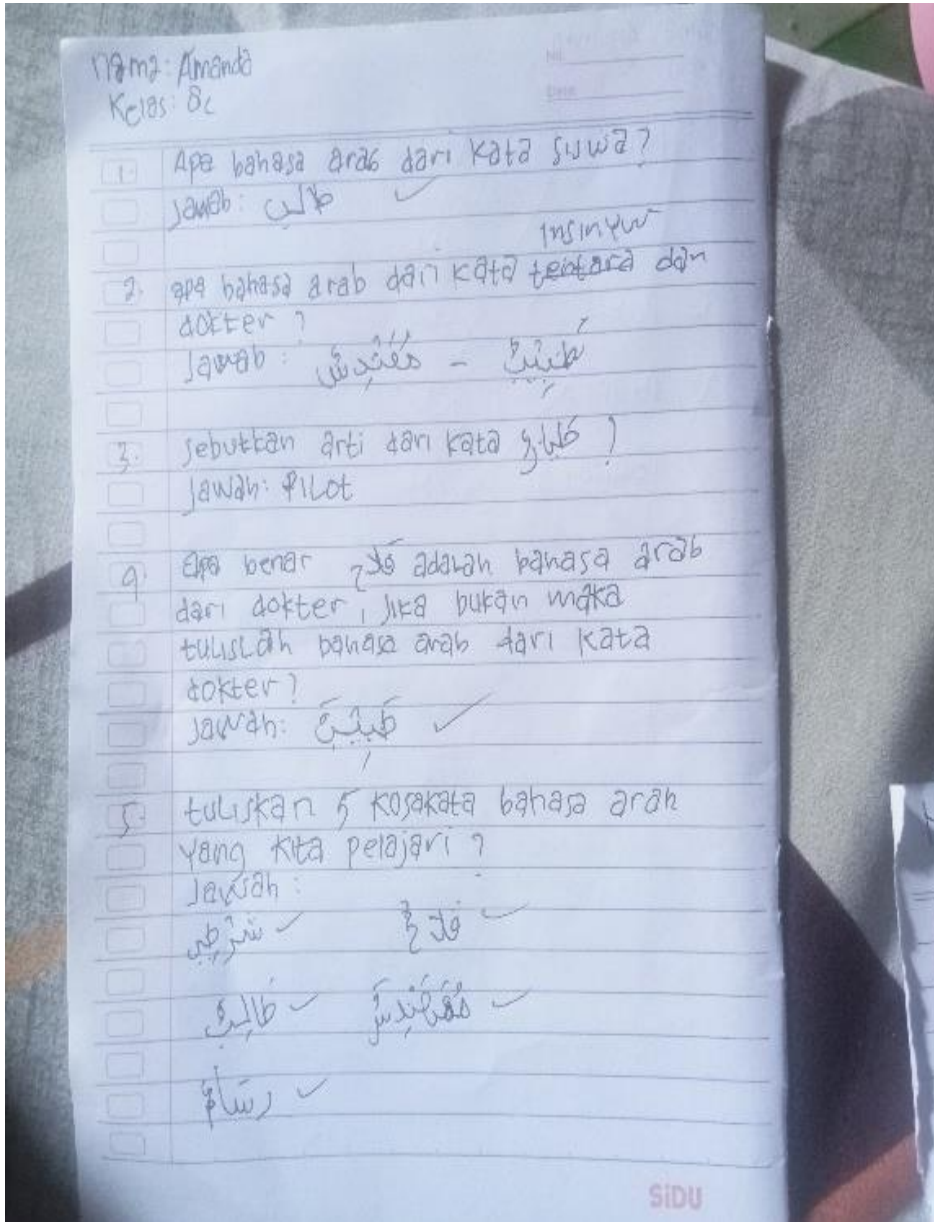 Nama: Amanda
Kelas: 8c
No
Date
1. Apa bahasa arab dari kata siswa?
Jawab: طالب
insinyur
2. apa bahasa arab dari kata tentara dan
dokter ?
Jawab: مُهَنْدِسٌ - طَبِيْبٌ
3. Sebutkan arti dari kata طَيَّارٌ ?
Jawab: PILOT
4. Apa benar فَلاَّحٌ adalah bahasa arab
dari dokter, jika bukan maka
tulislah bahasa arab dari kata
dokter?
Jawab: طَبِيْبٌ
5. tuliskan 5 kosakata bahasa arab
yang kita pelajari ?
Jawab :
شُرْطِيٌّ فَلاَّحٌ
طَالِبٌ مُهَنْدِسٌ
رَسَّامٌ
SiDU